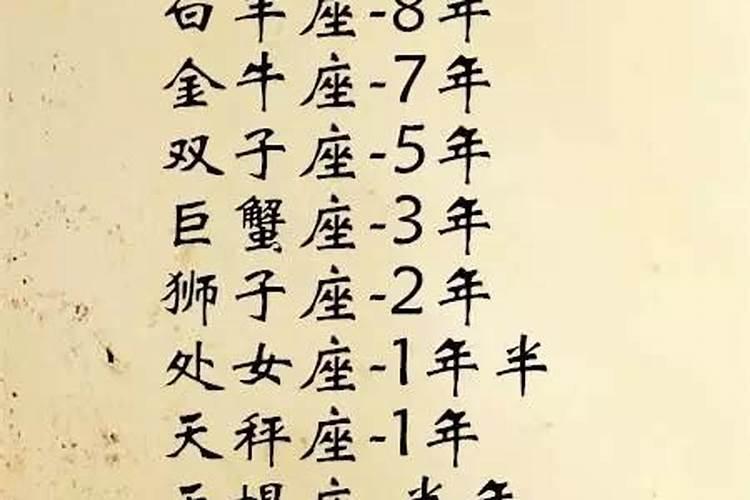 白羊座-8年
金牛座-7年
双子座-5年
巨蟹座-3年
狮子座-2年
处女座-1年半
天秤座-1年
天蝎座-半年